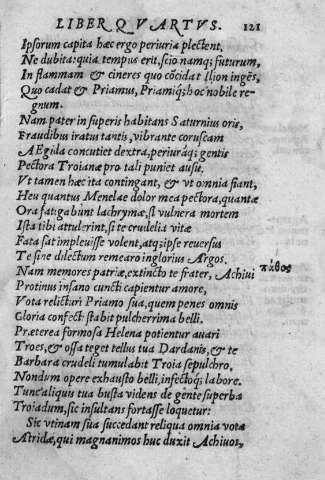 LIBER QVARTVS. 121
Ipsorum capita hæc ergo periuria plectent,
Ne dubita: quia tempus erit, scio namq; futurum,
In flammam & cineres quo cōcidat Ilion ingēs,
Quo cadat & Priamus, Priamiq; hoc nobile re-
gnum.
Nam pater in superis habitans Saturnius oris,
Fraudibus iratus tantis, vibrante coruscam
AEgida concutiet dextra, periuráq; gentis
Pectora Troianæ pro tali puniet ausu.
Vt tamen hæc ita contingant, & vt omnia fiant,
Heu quantus Menelae dolor mea pectora, quantæ
Ora fatigabūnt lachrymæ, si vulnera mortem
Ista tibi attulerint, si te crudelia vitæ
Fata sat impleuisse volent, atq; ipse reuersus
Te sine dilectum remearo inglorius Argos.
Nam memores patriæ, extincto te frater, Achiui
πάθος
Protinus insano cuncti capientur amore,
Vota relicturi Priamo sua, quem penes omnis
Gloria confecti stabit pulcherrima belli.
Præterea formosa Helena potientur auari
Troes, & ossa teget tellus tua Dardanis, & te
Barbara crudeli tumulabit Troia sepulchro,
Nondum opere exhausto belli, infectoq; labore.
Tunc aliquis tua busta videns de gente superba
Troiadum, sic insultans fortasse loquetur:
Sic vtinam sua succedant reliqua omnia vota
Atridæ, qui magnanimos huc duxit Achiuos,